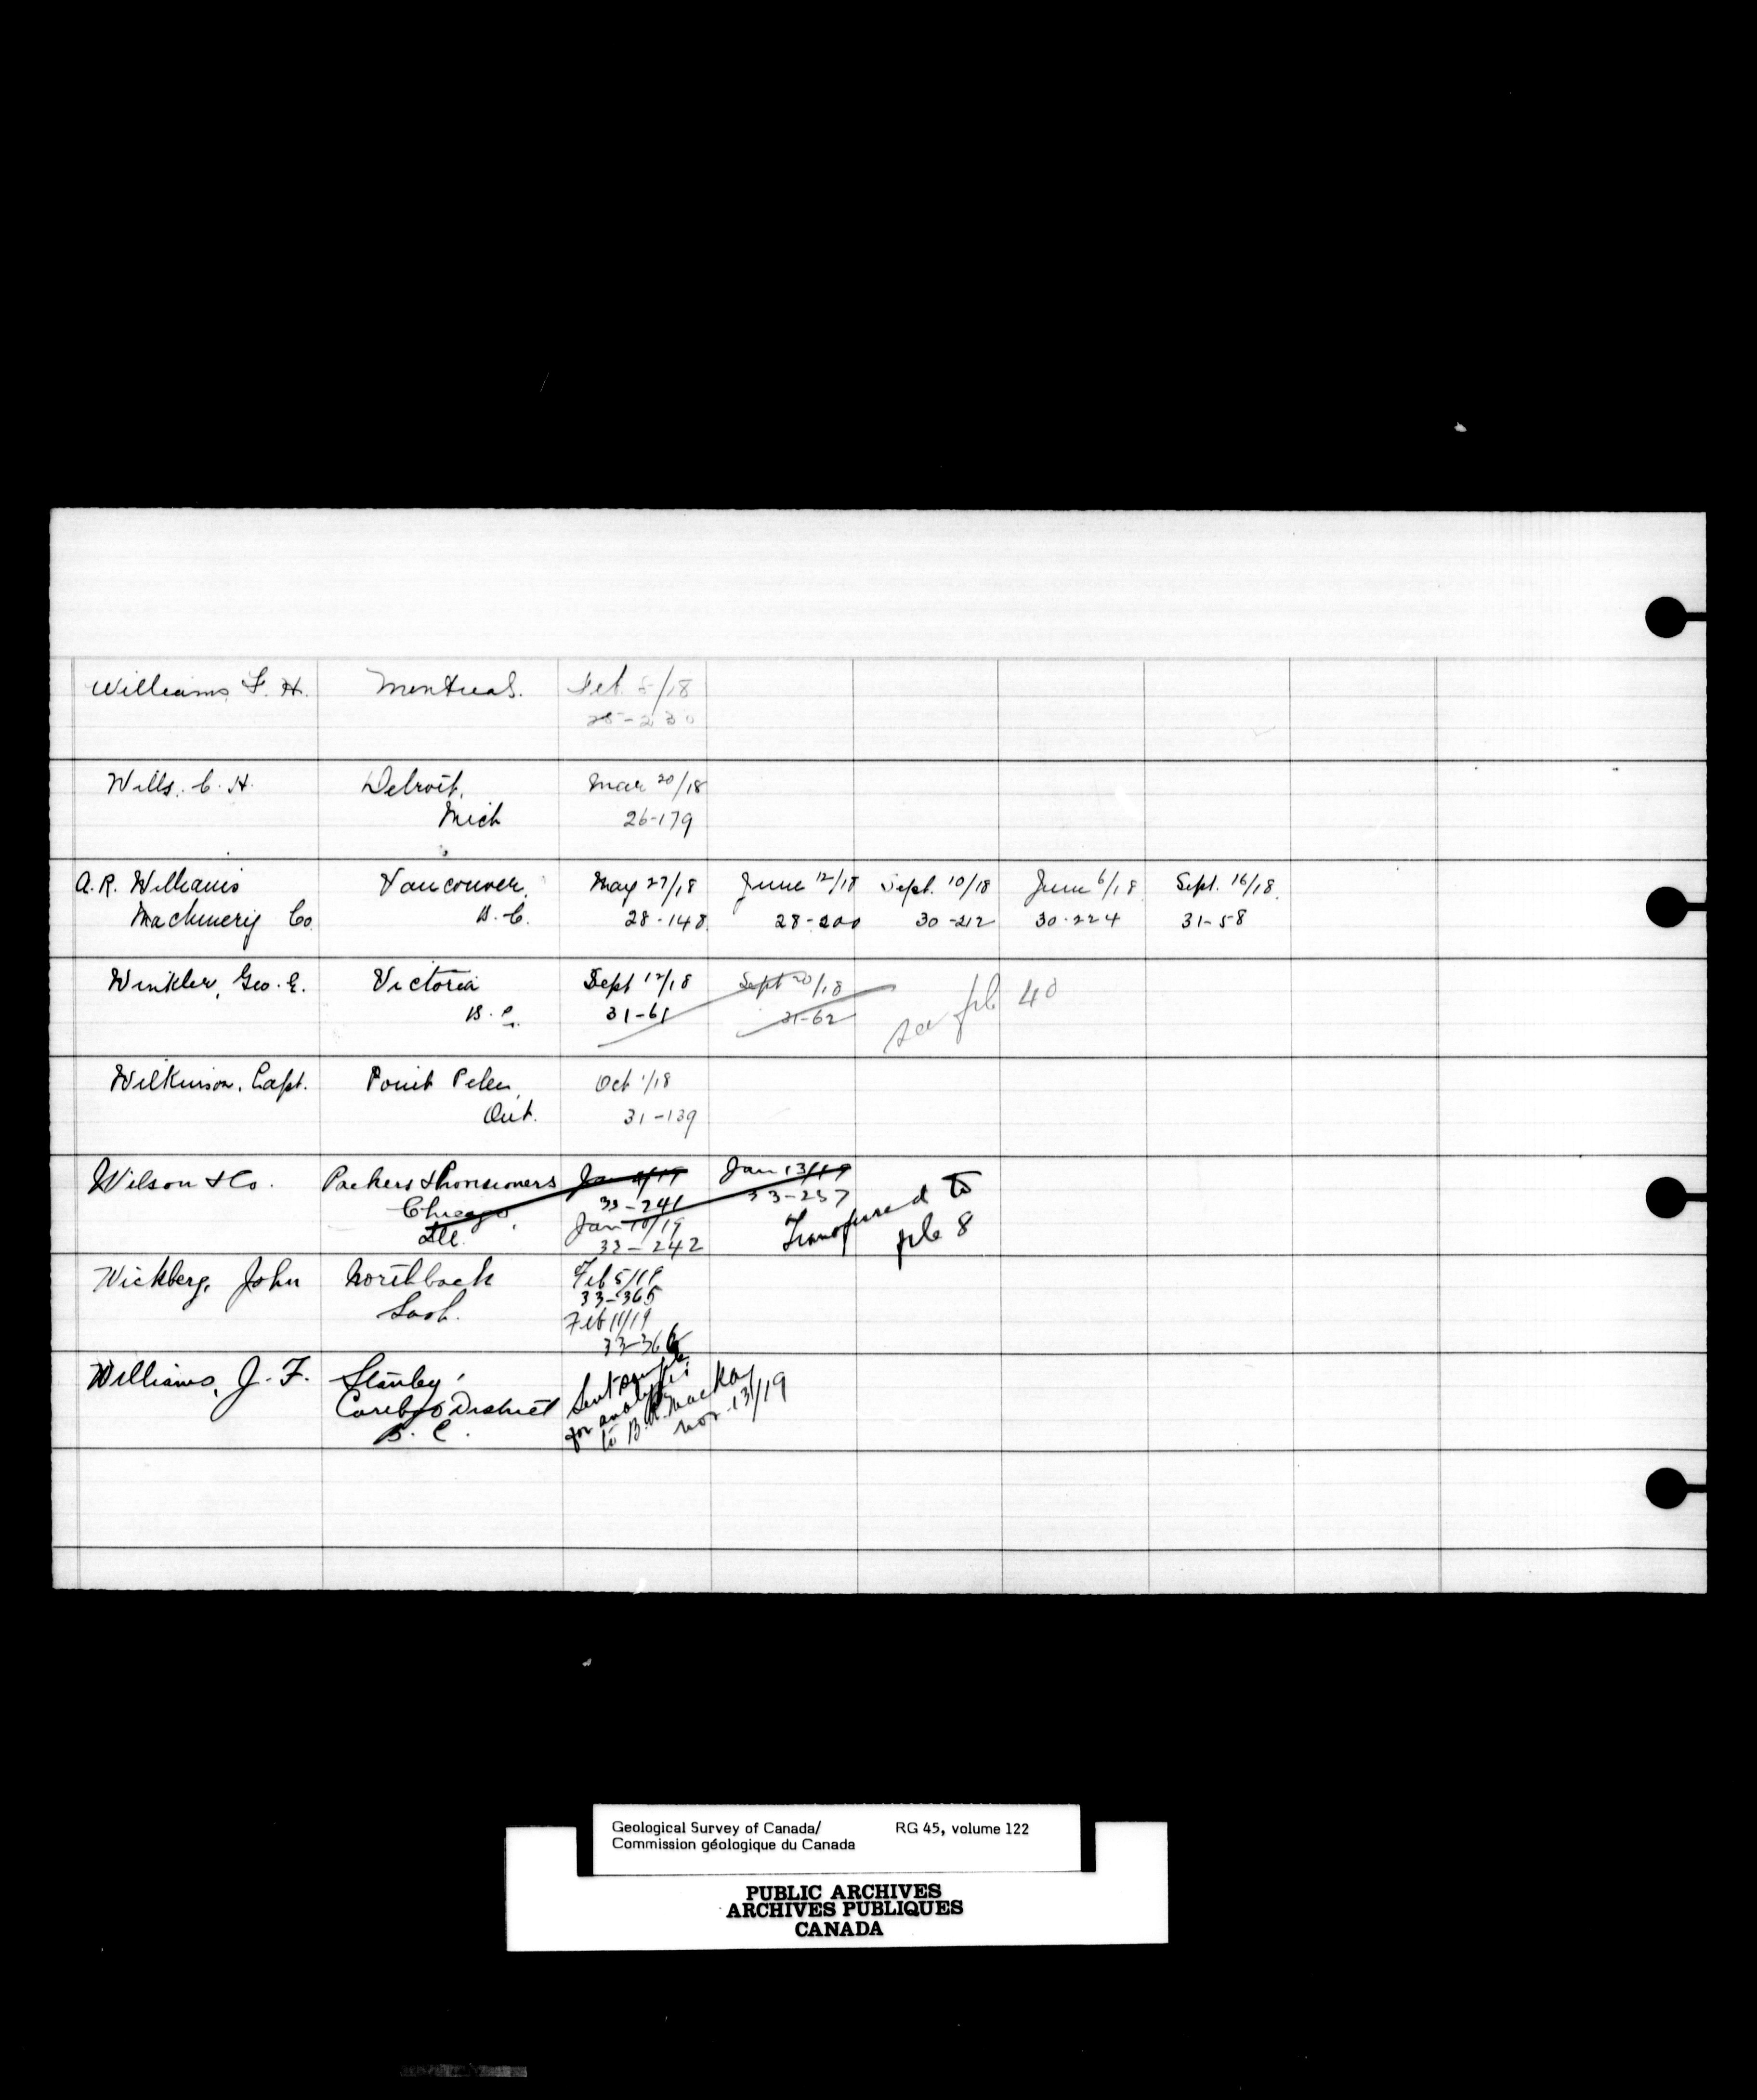 Williams, F. H. Montreal. Feb. 5/18
25-230
Wills. C. H. Detroit, Mar 20/18
Mich 26-179
A. R. Williams Vancouver, May 27/18 June 12/18 Sept. 10/18 June 6/18 Sept. 16/18.
Machinery Co. B. C. 28-148 28-200 30-212 30-224 31-58
Winkler, Geo. E. Victoria Sept 12/18 Sept 20/18
B. C. 31-61 31-62 see file 40
Wilkinson, Capt. Point Pelee, Oct 1/18
Ont. 31-139
Wilson & Co. Packers & Provisioners Jan /19 Jan 13/19
Chicago, 33-241 33-257 Transferred to
Ill. Jan 10/19 file 8
33-242
Wickberg, John Northback Feb 5/19
Sask. 33-365
Feb 11/19
33-366
Williams, J. F. Stanley, Sent sample
Cariboo District for analysis
B. C. to B. R. Mackay
Nov. 13/19
Geological Survey of Canada/ RG 45, volume 122
Commission géologique du Canada
PUBLIC ARCHIVES
ARCHIVES PUBLIQUES
CANADA